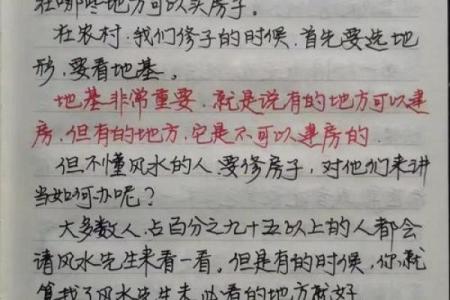 在哪些地方可以买房子。
在农村,我们修子的时候,首先要选地
形,要看地基。
地基非常重要,就是说有的地方可以建
房,但有的地方,它是不可以建房的.
但不懂风水的人要修房子,对他们来讲
当如何办呢?
大多数人,占百分之九十五以上的人都会
请风水先生来看一看。但是有的时候,你就
算找了风水先生来,他看的地方就好